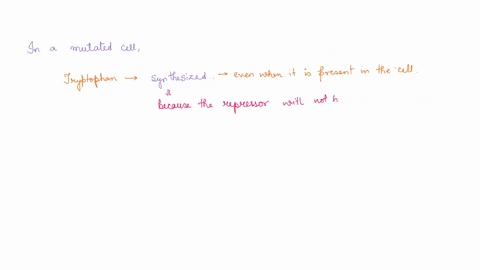 In a mutated cell,
Tryptophan → synthesized. → even when it is present in the cell.
because the repressor will not